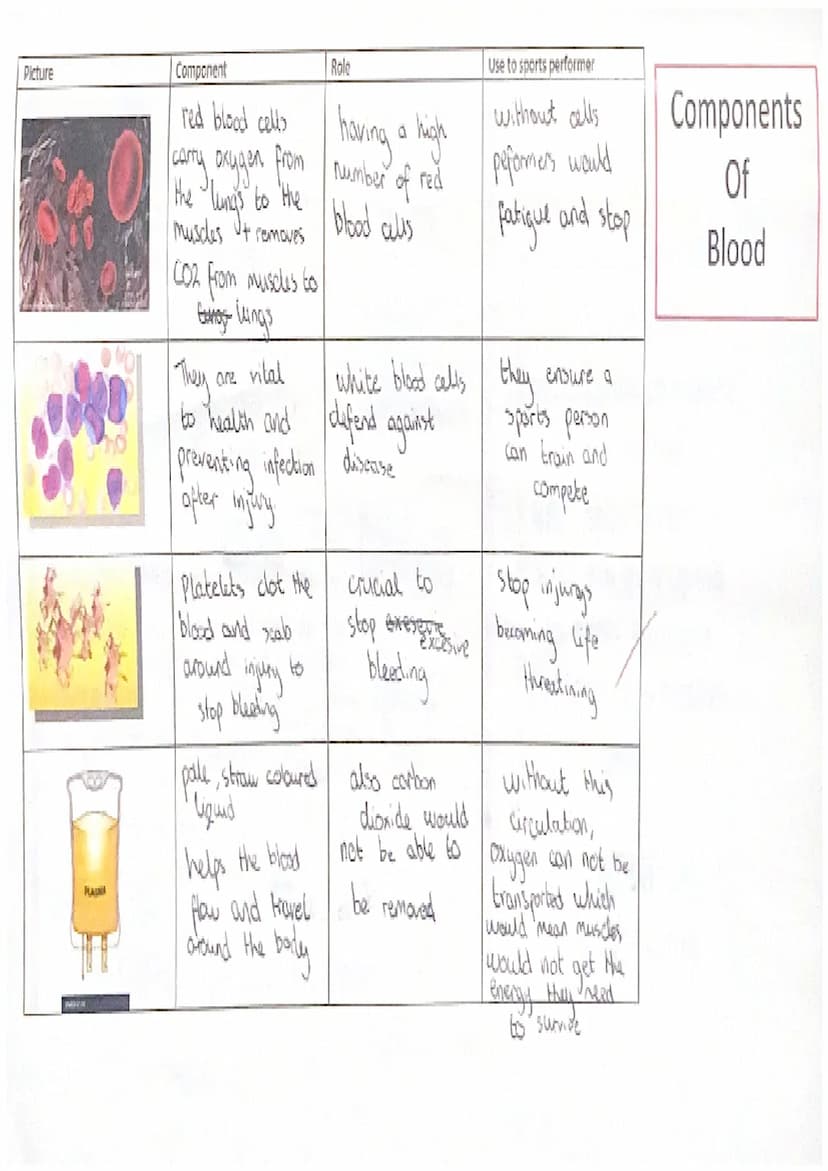 Picture
Component
Role
Use to sports performer
Components
Of
Blood
red blood cells
carry oxygen from
the lungs to the
muscles + removes
CO2 from muscles to
lungs lungs
having a high
number of red
blood cells
without cells
peformers would
fatigue and stop
They are vital
to health and
preventing infection
after injury.
white blood cells
defend against
disease
they ensure a
sports person
can train and
compete
Platelets clot the
blood and scab
around injury to
stop bleeding
crucial to
stop
excesive
bleeding
stop injurys
becoming life
threatining
PLASMA
pale, straw coloured
liquid
helps the blood
flow and travel
around the body
also carbon
dioxide would
not be able to
be removed
without this
circulation,
oxygen can not be
transported which
would mean muscles
would not get the
energy they need
to survive